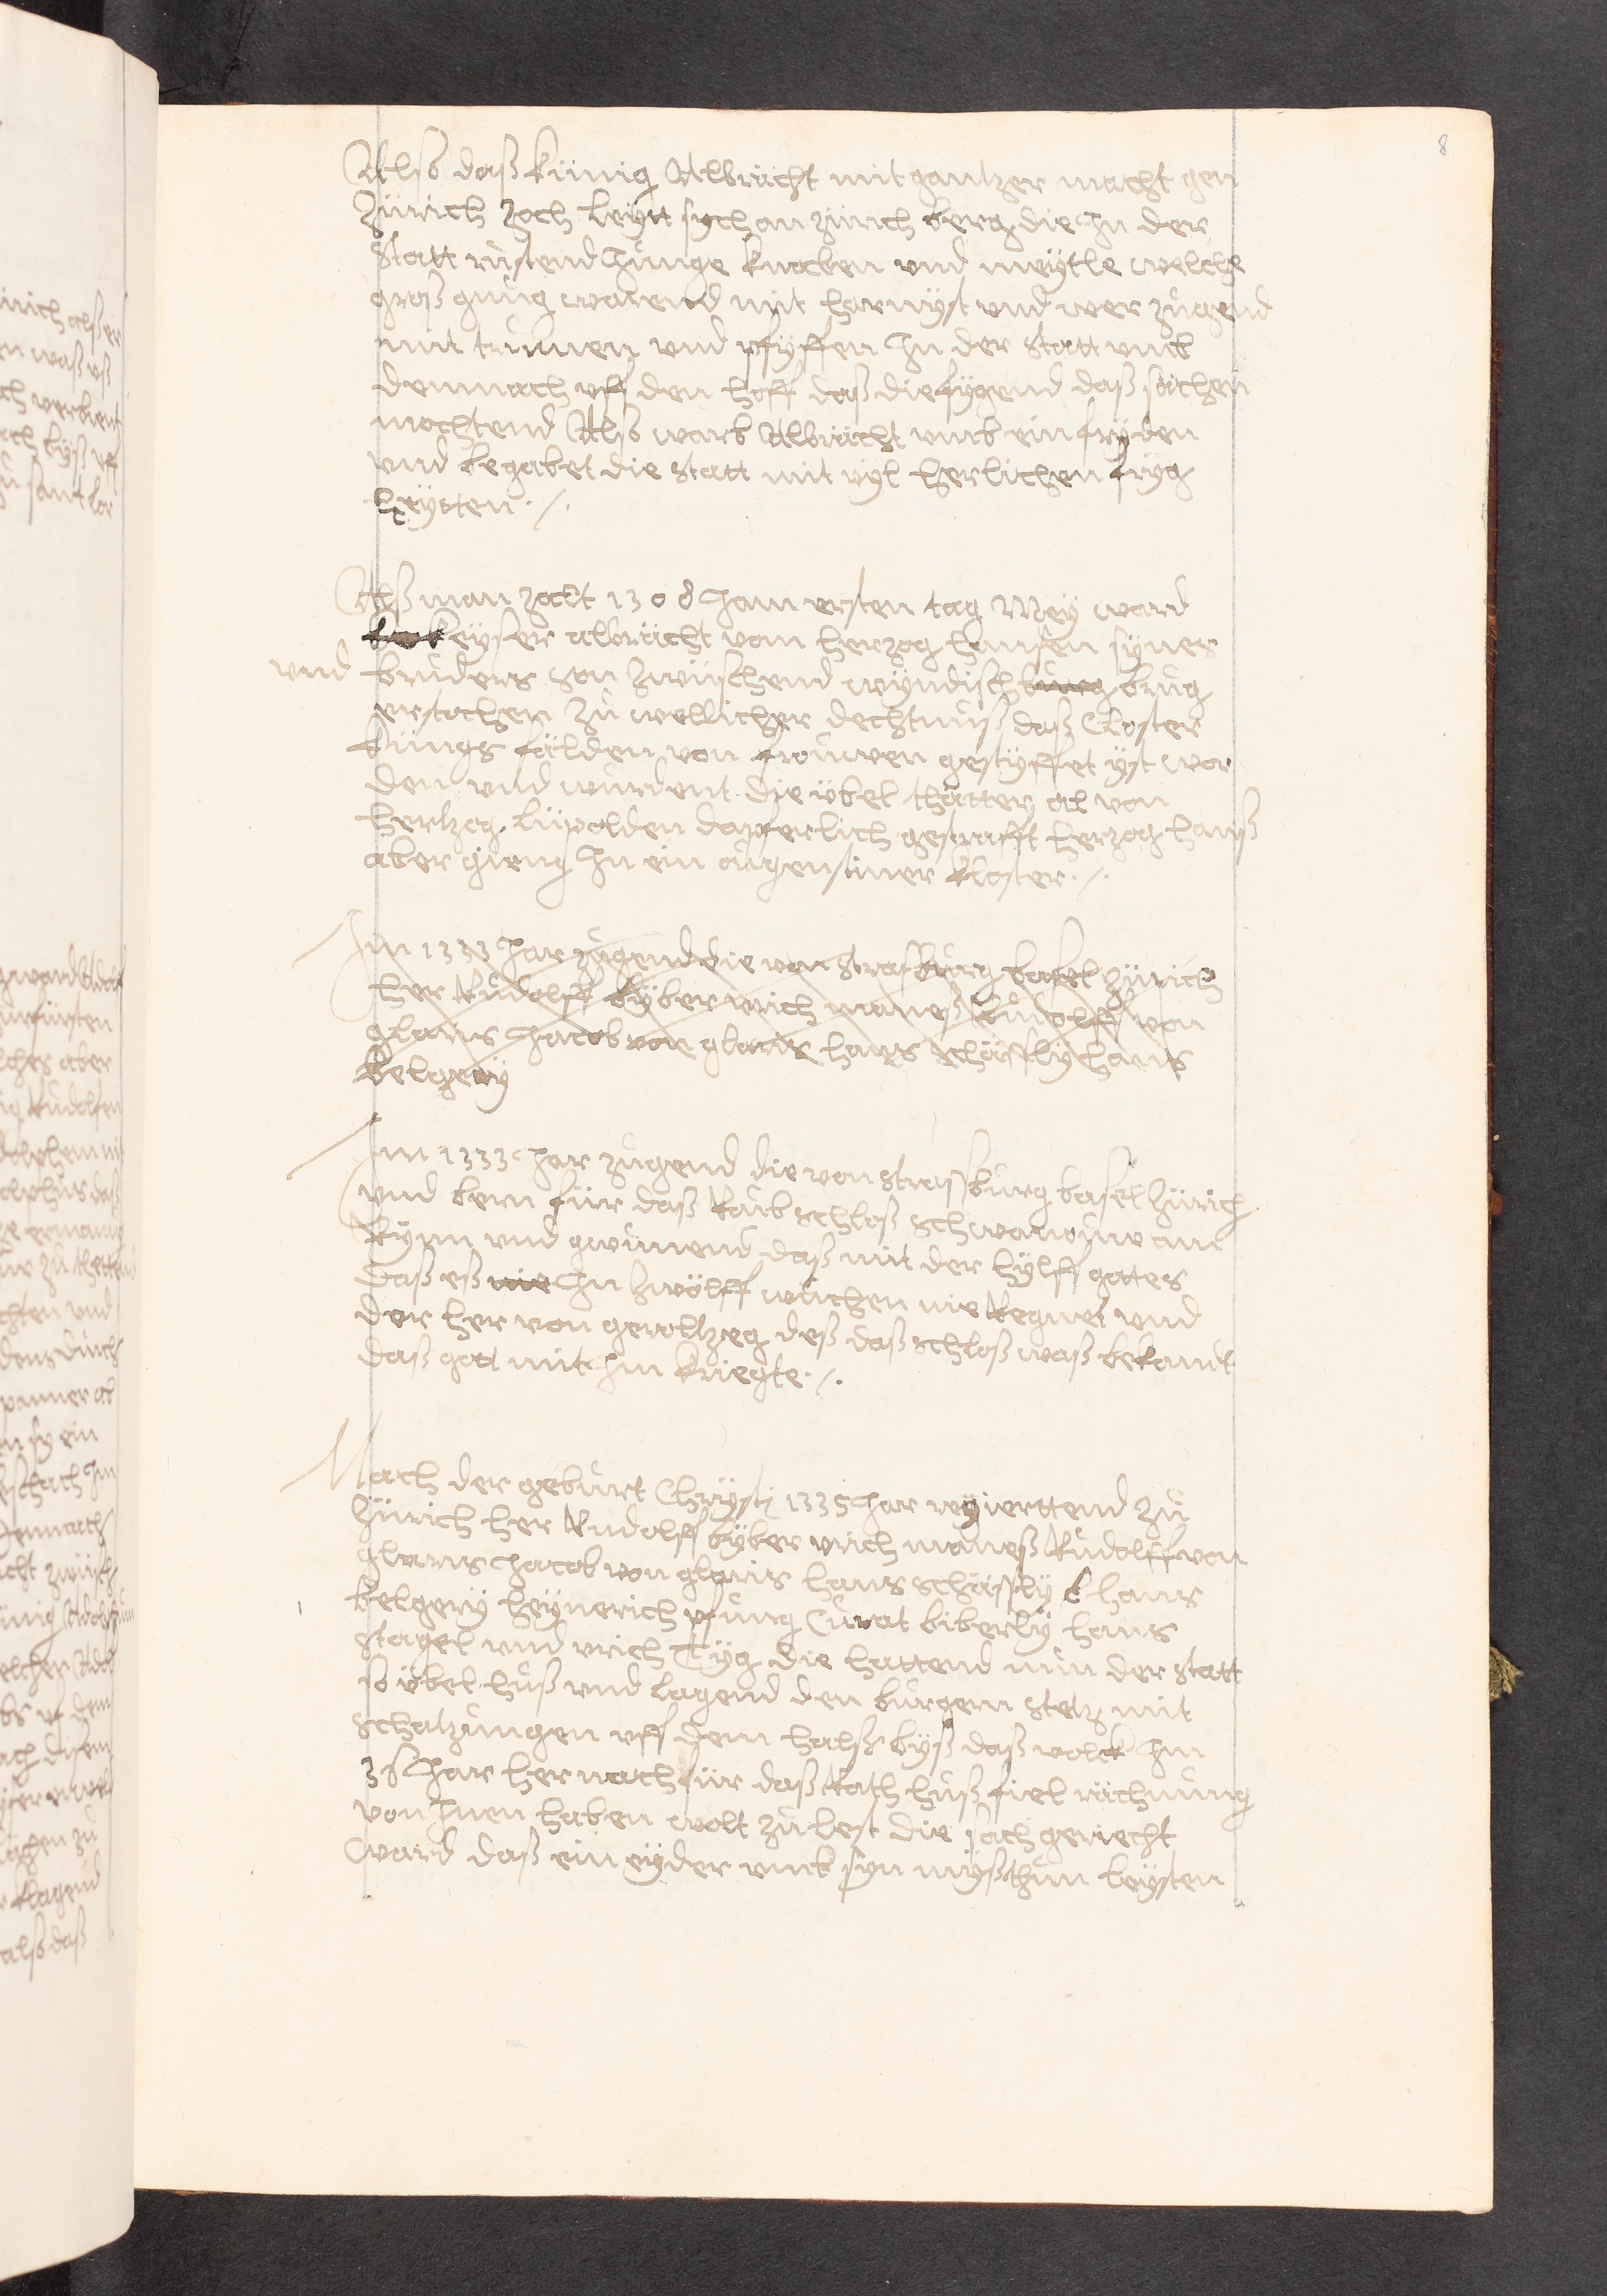 8
Alß daß künig Albrächt mit gantzer macht gen
Zürich zoch leytt sych an Zürich berg die In der
Statt rüstend Junge knaben und meytle welche
groß gnüg warend mit harnyst und wer zügend
mit trumen und pfyffen In der Statt umb
demnach uff den hoff daß die fygend daß sächen
mochtend Alß warb Albrächt umb ein fryden
und begabet die Statt mit vyl herlichen fryg
heytten ./.
Alß man zalt 1308 Jam ersten tag Mey ward
keyser albrächt vom herzog hansen synes
und bruders son zwüschend wyndisch burg brug
erstochen zu wellicher dechtnuß daß Closter
Küngs fälden von frouwen gestyfftet yst wor
den und wurdent die übel thätter al von
hertzog Lüpolden dapferlich gestrafft herzog hanß
aber gieng In ein ougenstiner kloster ./.
Im 1333 Jar zugend die von Strasburg basel Zürich
her Rudolff byber urich maneß Rudolff von
glarus Jacob von glaris hans schäffly hans
belgery
Im 1333 Jar zugend die von Strassburg basel Zürich
und bern für daß Raub schloß schwanouw am
Rynn und gwunend daß mit der hylff gottes
daß eß nie In zwölff wuchen nie Regnet und
der her von geroltzeg deß daß schloß waß bekandt
daß gott mit Im kriegte ./.
Nach der geburt Chrysti 1335 Jar regierttend zu
Zürich her Rudolff byber urich maneß Rudolff von
glarus Jacob von glaris hans schäffly hans
belgery heynerich pfung Curat biberly hans
stagel und urich Fyg die hattend nun der statt
so übel huß und lagend den burgern stetz mit
schatzungen uff dem halß byß daß volck Im
36 Jar hernach für daß Rath huß fiel rächnung
von Inen haben wolt zu lest die sach gericht
ward daß ein eyder umb syn myßthun leysten